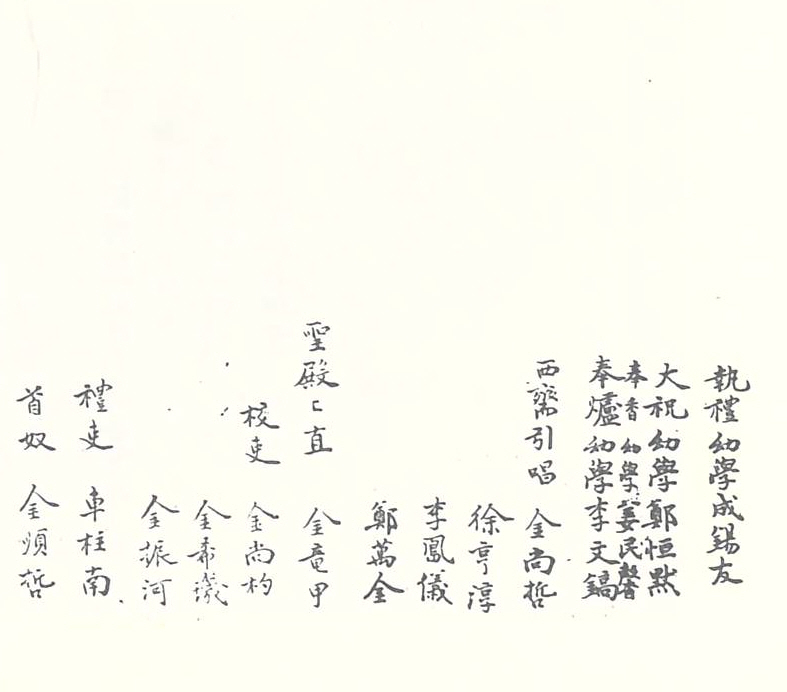 執禮幼學成錫友
大祝幼學鄭恒默
奉香幼學姜民馨
奉爐幼學李文鎬
西齋引唱 金尙哲
徐亨淳
李鳳儀
鄭萬金
聖殿〻直 金竜甲
校吏 金尙杓
金希璣
金振河
禮吏 車柱南
首奴 金順哲